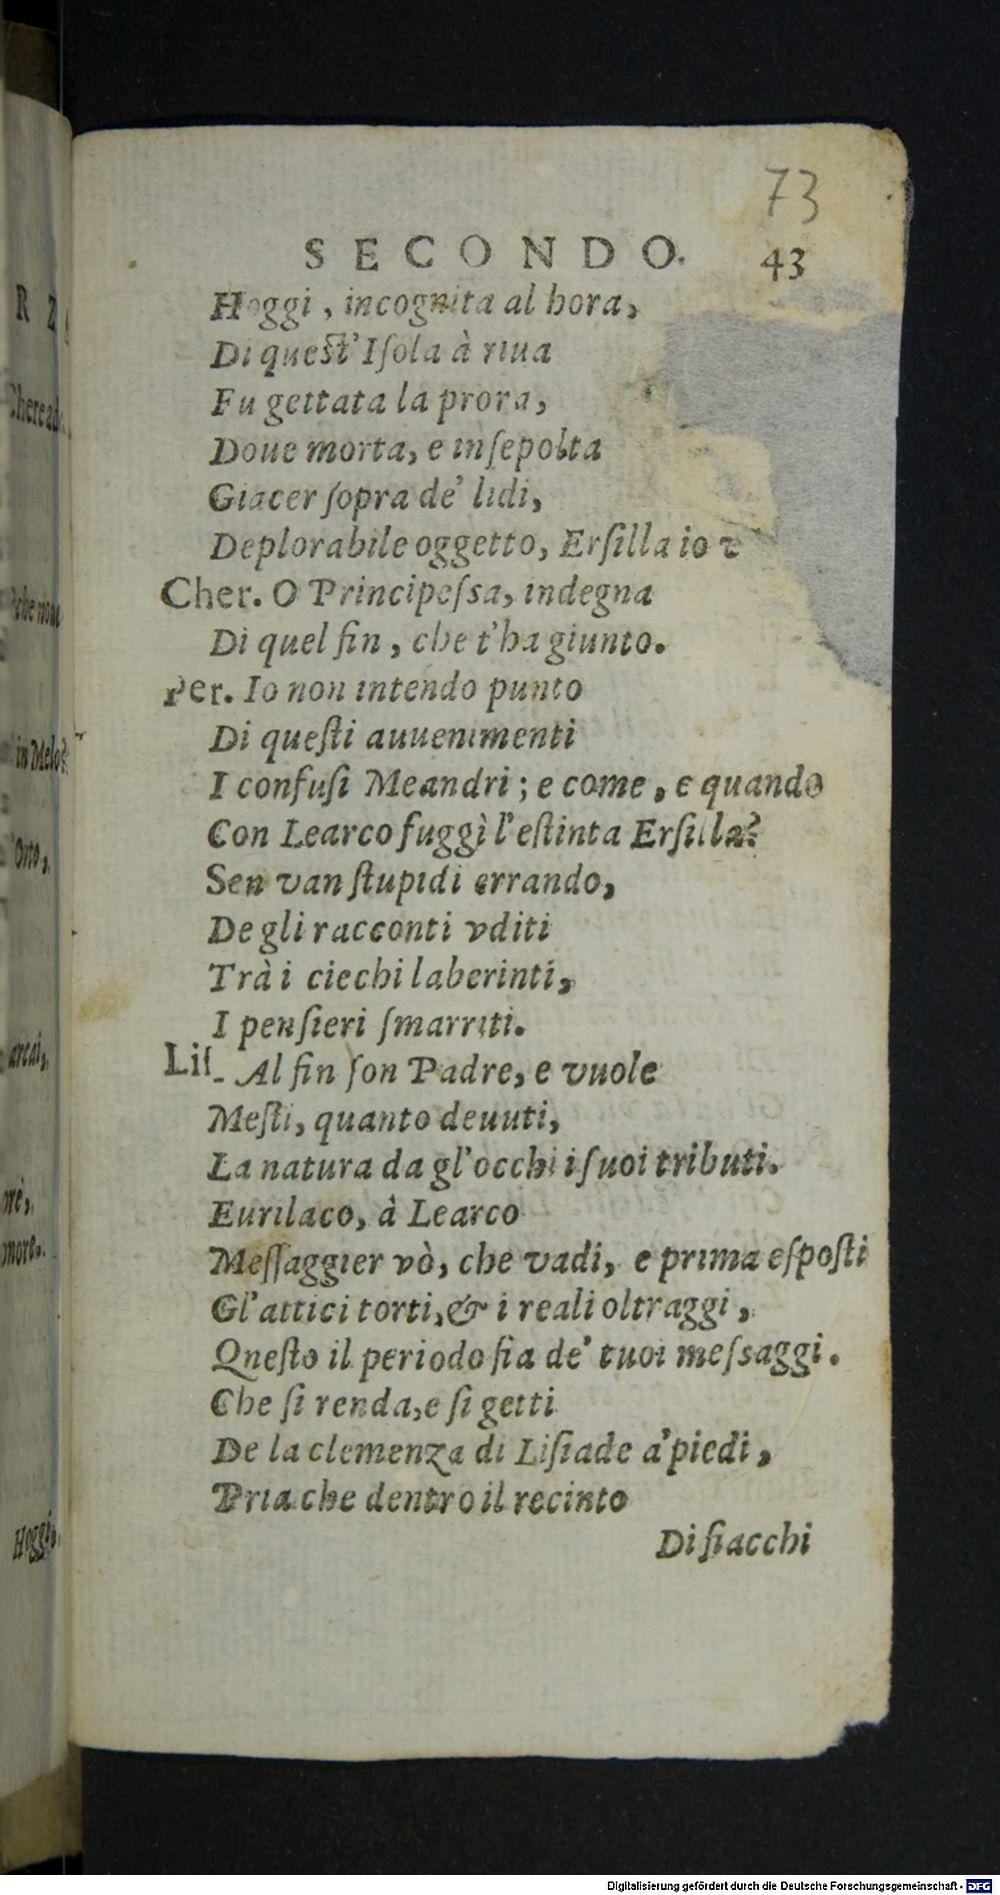 73
SECONDO. 43
Hoggi, incognita al hora,
Di quest' Iſola à riua
Fu gettata la prora,
Doue morta, e inſepolta
Giacer ſopra de' lidi,
Deplorabile oggetto, Erſilla io
Cher. O Principeſsa, indegna
Di quel fin, che t'ha giunto.
Per. Io non intendo punto
Di queſti auuenimenti
I confuſi Meandri; e come, e quando
Con Learco fuggì l'eſtinta Erſilla?
Sen van ſtupidi errando,
De gli racconti vditi
Trà i ciechi laberinti,
I penſieri ſmarriti.
Liſ. Al fin ſon Padre, e vuole
Meſti, quanto deuuti,
La natura da gl'occhi i ſuoi tributi.
Eurilaco, à Learco
Meſſaggier vò, che vadi, e prima eſpoſti
Gl'attici torti, & i reali oltraggi,
Qneſto il periodo ſia de' tuoi meſsaggi.
Che ſi renda, e ſi getti
De la clemenza di Liſiade a' piedi,
Pria che dentro il recinto
Di fiacchi
R Z
Cheread
che non
in Melo?
Orto,
arcai,
more.
Hoggi,
Digitalisierung gefördert durch die Deutsche Forschungsgemeinschaft - DFG